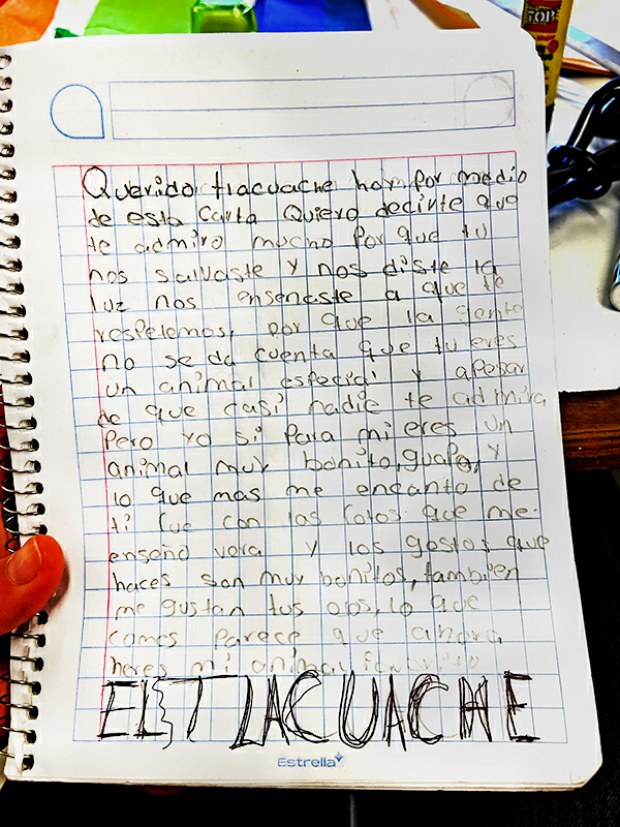 TOP
Querido tlacuache hoy por medio
de esta carta Quiero decirte que
te admiro mucho Por que tu
nos salvaste y nos diste la
luz nos enseñaste a que te
respetemos, por que la gente
no se da cuenta que tu eres
un animal especial y apesar
de que casi nadie te admira
Pero yo si Para mi eres un
animal muy bonito, guapo, y
lo que mas me encanto de
ti fue con las fotos que me
enseño vera y los gestos que
haces son muy bonitos, tambien
me gustan tus ojos, lo que
comes Parece que ahora
heres mi animal favorito
EL TLACUACHE
Estrella